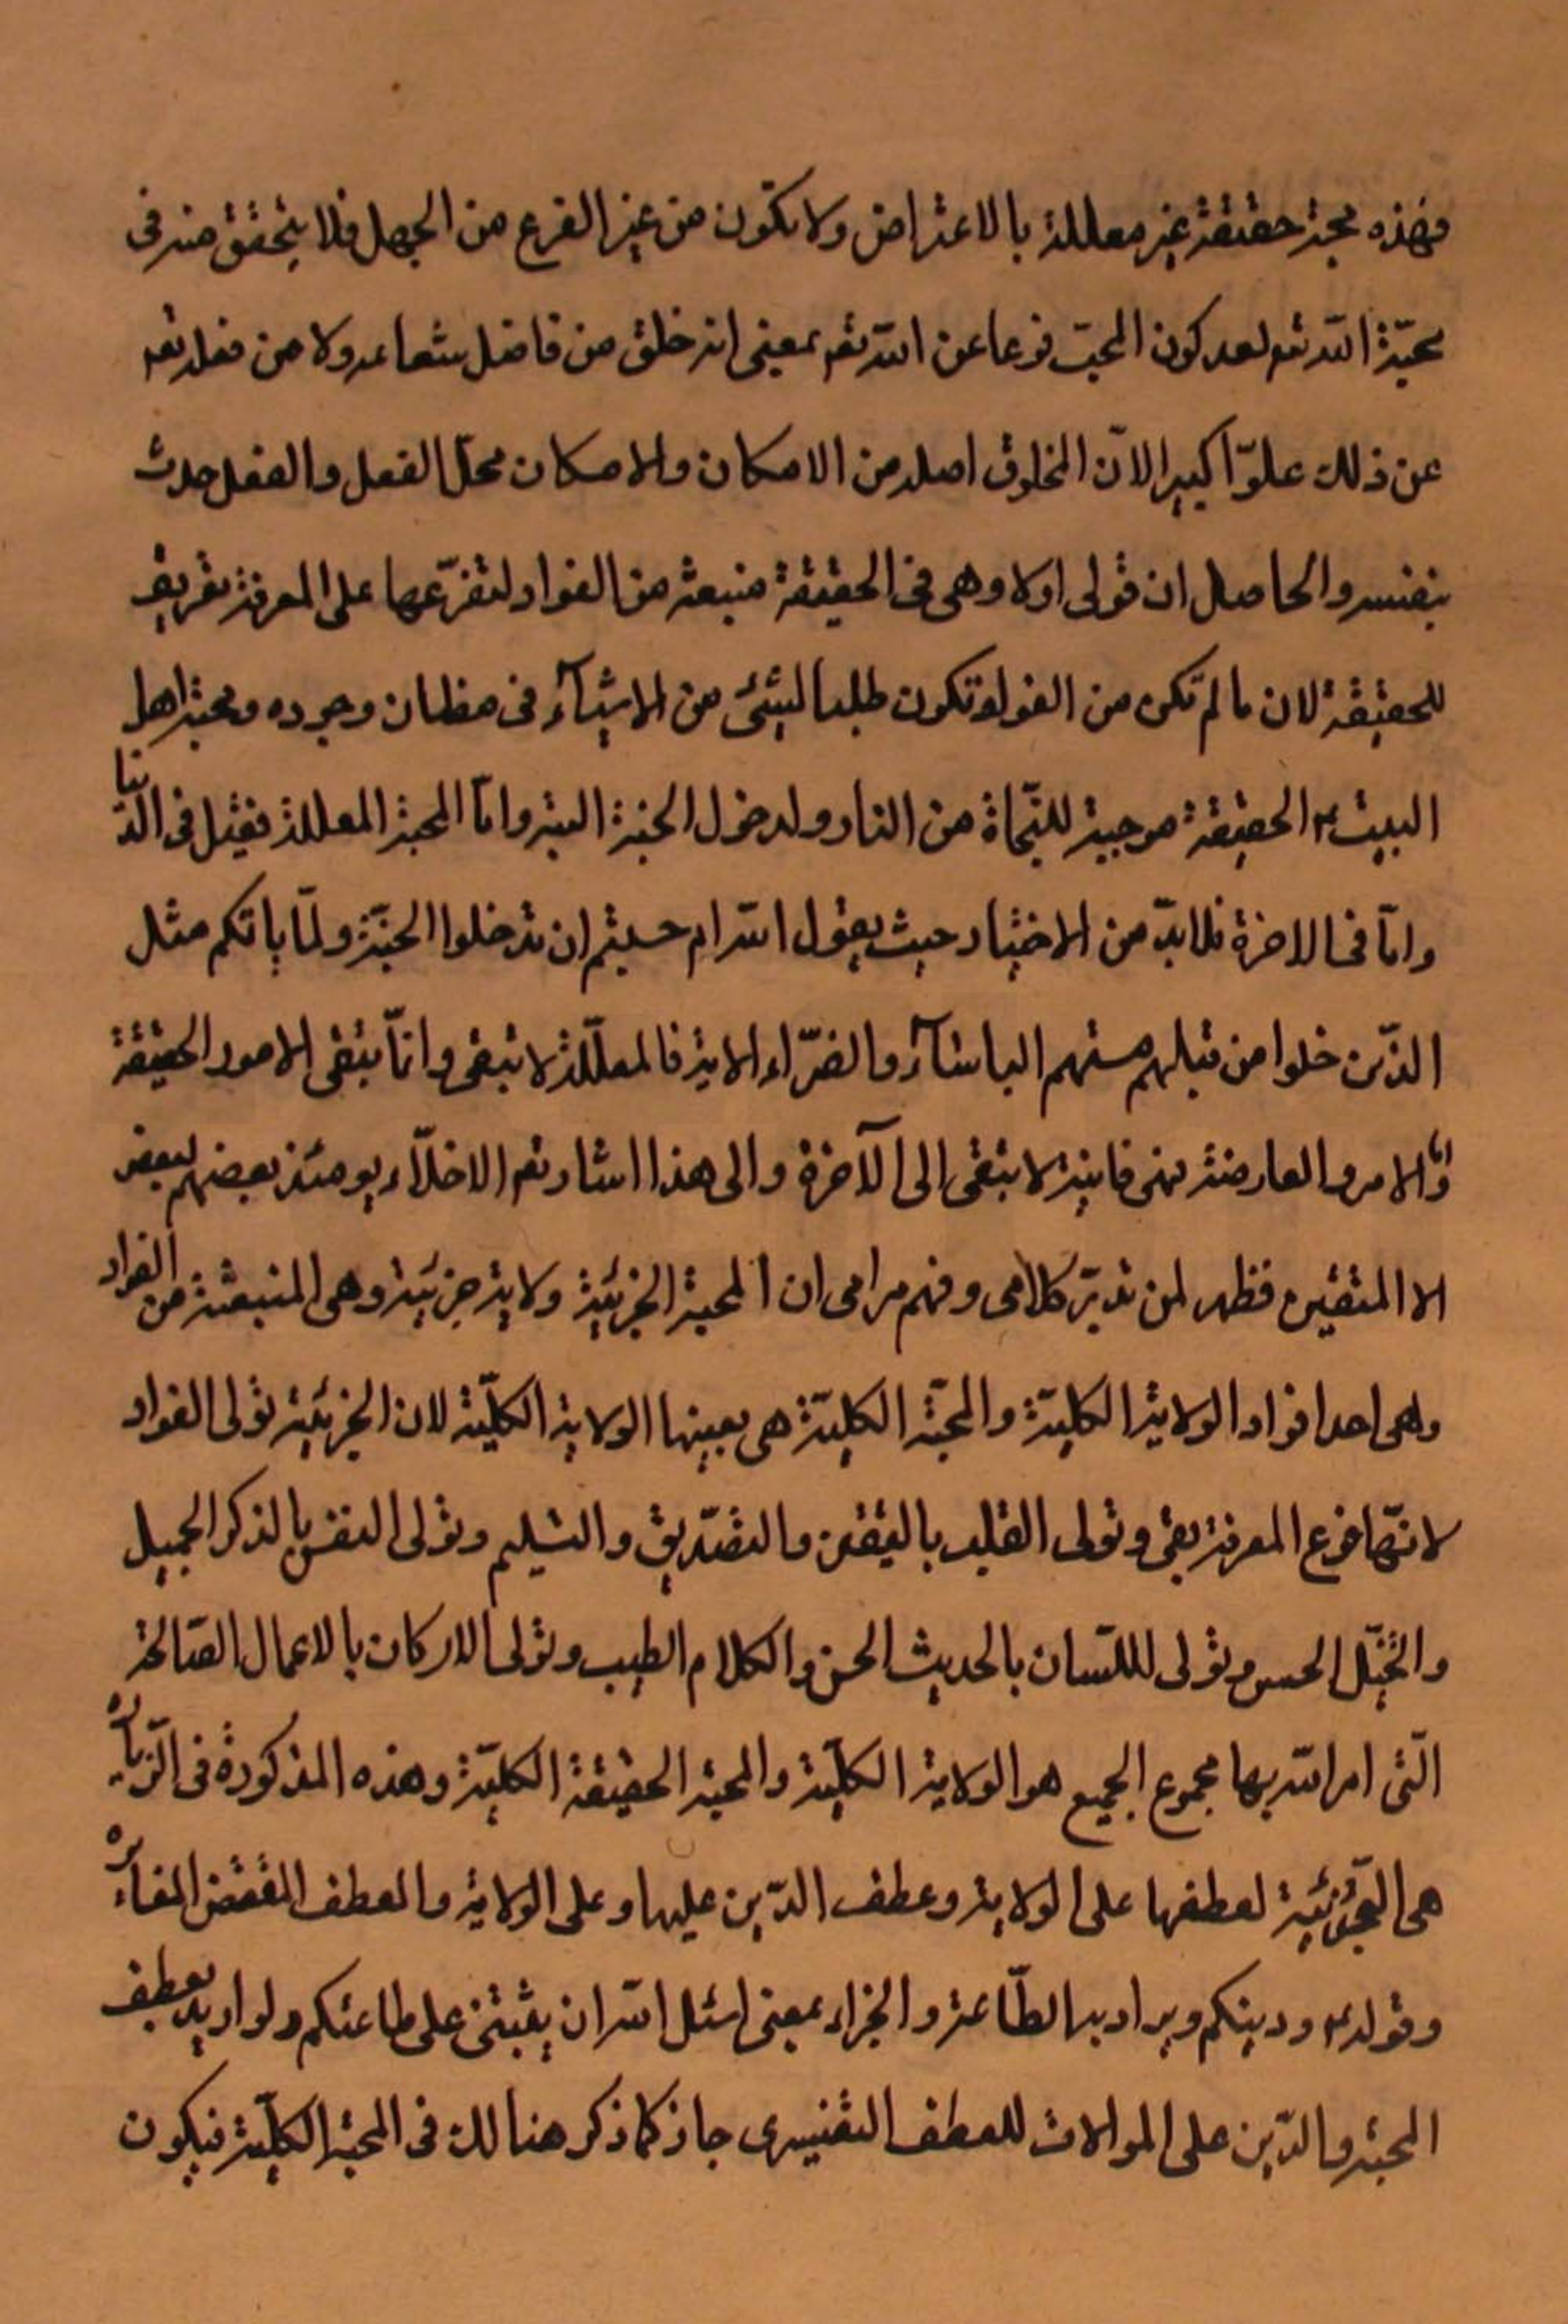 فهذه محبة حقيقة غير معللة بالاعتراض ولا يكون من غير الفرع من الجهل فلا يتحقق منه فى
محبّة اللّه تع لعدم كون المحبّ فرعا عن اللّه تع بمعنى انه خلق من فاضل شعاعه ولا من فعله تع
عن ذلك علوّا كبيرا لانّ المخلوق اصله من الامكان والامكان محلّ الفعل والفعل حدث
بنفسه والحاصل ان قولى اولا وهى فى الحقيقة منبعثه من الفواد لتفرّعها على المعرفة تعريف
للحقيقة لان ما لم تكن من الفواد تكون طلبا لشئ من الاشيآء فى مظان وجوده ومحبة اهل
البيت ع الحقيقة موجبة للنّجاة من النار ولدخول الجنة البتة وامّا المحبة المعللة فيقبل فى الدّنيا
وامّا فى الاخرة فلا بدّ من الاختيار حيث يقول اللّه ام حسبتم ان تدخلوا الجنّة ولمّا ياتكم مثل
الذّين خلوا من قبلهم مستهم الباسآء والضرّاء الاية فالمعلّلة لا تبقى وانّما يبقى الامور الحقيقة
وامّا الامور العارضة فهى فانية لا تبقى الى الآخرة والى هذا اشار تع الاخلّاء يومئذ بعضهم لبعض
الا المتقين فظهر لمن تدبّر كلامى وفهم مرامى ان المحبة الجزئية ولاية جزئية وهى المنبعثة من الفواد
وهى احد افراد الولاية الكليّة والمحبّة الكليّة هى بعينها الولاية الكليّة لان الجزئية تولى الفواد
لانّها فرع المعرفة وتولى القلب باليقين والتصّديق والتسليم وتولى النفس بالذكر الجميل
والتخيّل الحسن وتولى اللّسان بالحديث الحسن والكلام الطيب وتولى الاركان بالاعمال الصّالحة
الّتى امر اللّه بها مجموع الجميع هو الولاية الكليّة والمحبة الحقيقة الكليّة وهذه المذكورة فى الزّيارة
هى الجزئية لعطفها على الولاية وعطف الدّين عليها وعلى الولاية والعطف المقتضى المغايرة
وقوله ع ودينكم ويراد به الطّاعة والجزاء بمعنى اسئل اللّه ان يثبتنى على طاعتكم ولو اريد بعطف
المحبة والدّين على الموالات للعطف التفسيرى جاز كما ذكر هنالك فى المحبة الكليّة فيكون